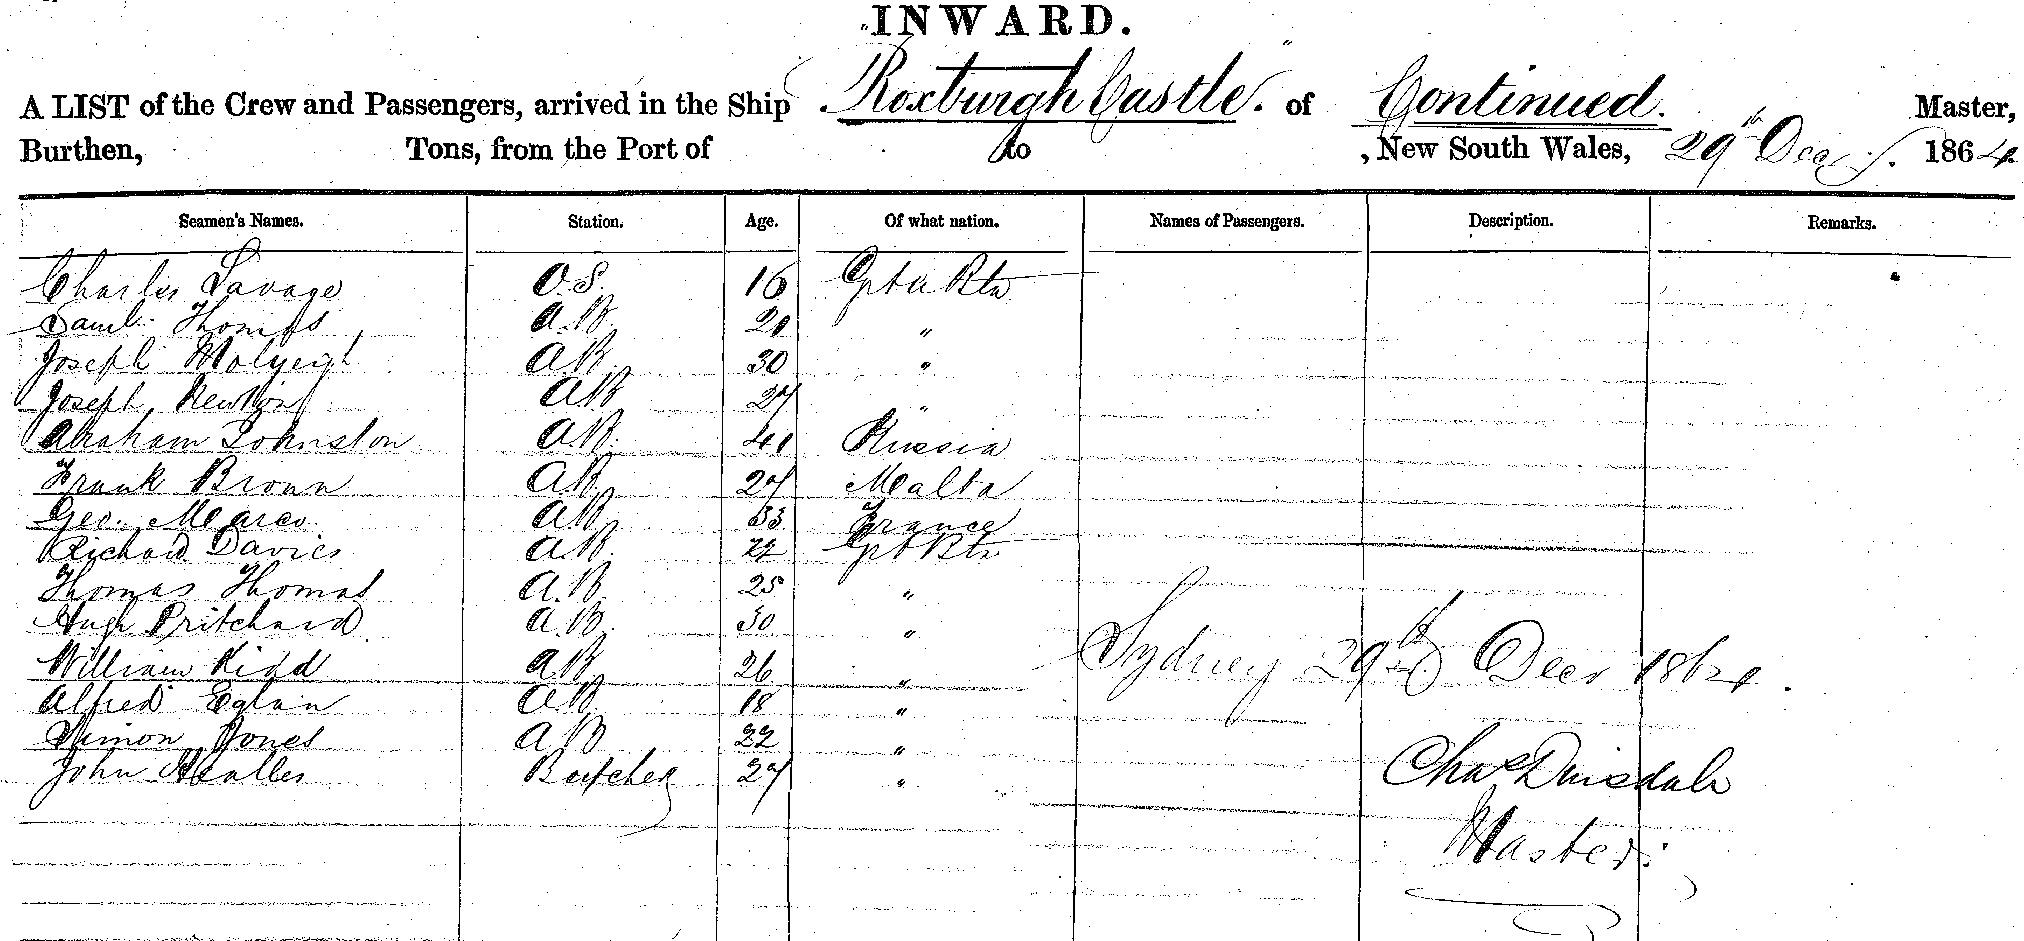 INWARD.
A LIST of the Crew and Passengers, arrived in the Ship Roxburgh Castle. of Continued. Master,
Burthen, Tons, from the Port of to , New South Wales, 29th Decr. 1864
Seamen's Names. Station. Age. Of what nation. Names of Passengers. Description. Remarks.
Charles Savage O.S. 16
Saml. Thomas A.B. 21 "
Joseph A.B. 30 "
Joseph A.B 27 "
Abraham Johnston A.B. 41 Russia
Frank Brown A.B. 27 Malta
Geo. Marco A.B. 33 France
Richard Davies A.B. 22 Gt Btn
Thomas Thomas A.B. 25 "
Hugh Pritchard A.B. 30 "
William Kidd A.B 26 "
Alfred A.B 18 "
Simon Jones A.B 22 "
John Butcher 27 "
Sydney 29th Decr 1864.
Chas Dinsdale
Master